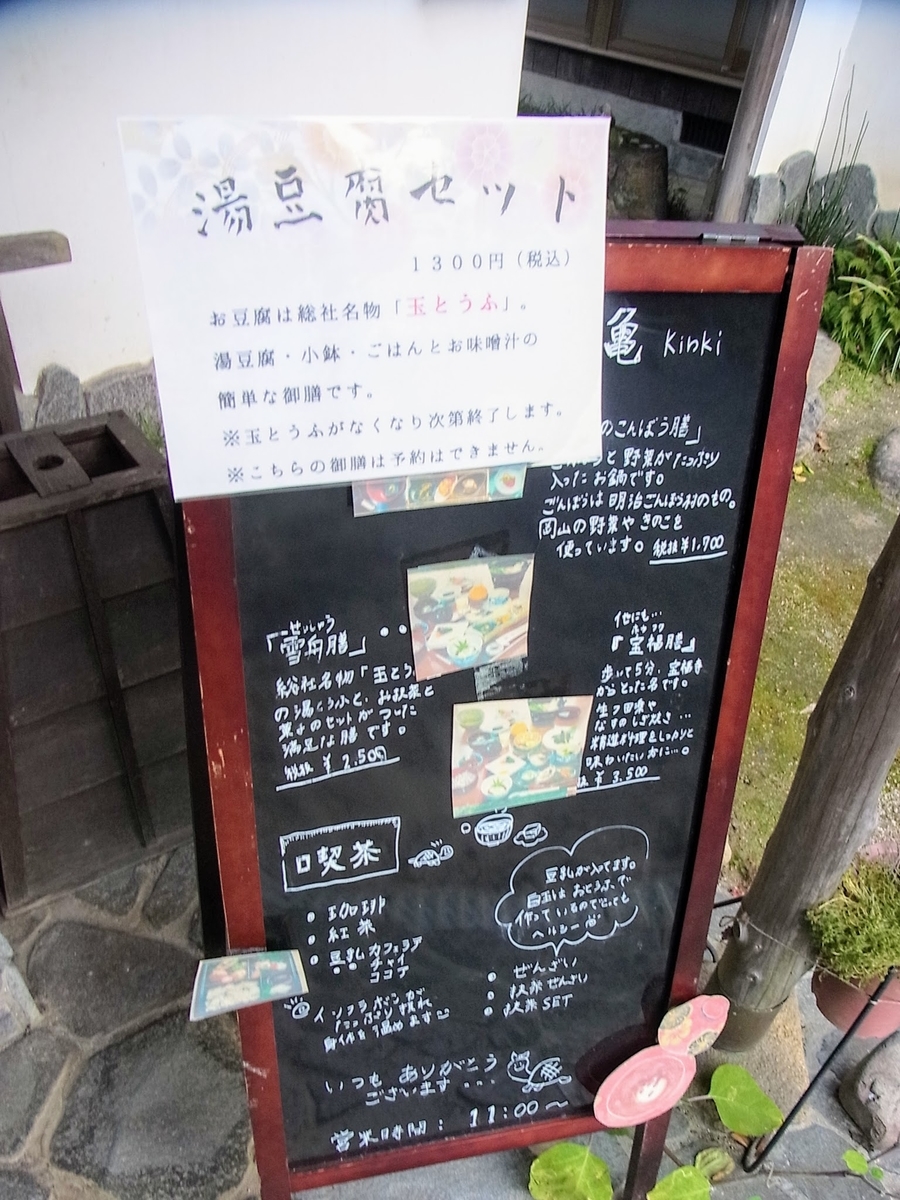 湯豆腐セット
1300円（税込）
お豆腐は総社名物「玉とうふ」。
湯豆腐・小鉢・ごはんとお味噌汁の
簡単な御膳です。
※玉とうふがなくなり次第終了します。
※こちらの御膳は予約はできません。
亀 Kinki
のごんぼう膳」
と野菜がたっぷり
入ったお鍋です。
ごんぼうは明治ごんぼう村のもの。
岡山の野菜やきのこを
使っています。税抜¥1,700
せっしゅう
「雪舟膳」
総社名物「玉とう
の湯どうふと、お抹茶と
菓子のセットがついた
満足な膳です。
税抜 ¥2,500
他にも…
ホウフク
『宝福膳』
歩いて5分、宝福寺
からとった名です。
生ゆ田楽や
なすのしぎ焼き…
精進料理をしっかりと
味わいたい方に…。
抜 ¥3,500
喫茶
・珈琲
・紅茶
・豆乳カフェオア
チャイ
ココア
豆乳が入ってます。
白玉は おとうふで
作っているのでとっても
ヘルシー
・ぜんざい
・抹茶ぜんざい
・抹茶SET
イソフラボンが
いつも ありがとう
ございます…
営業時間： 11:00〜